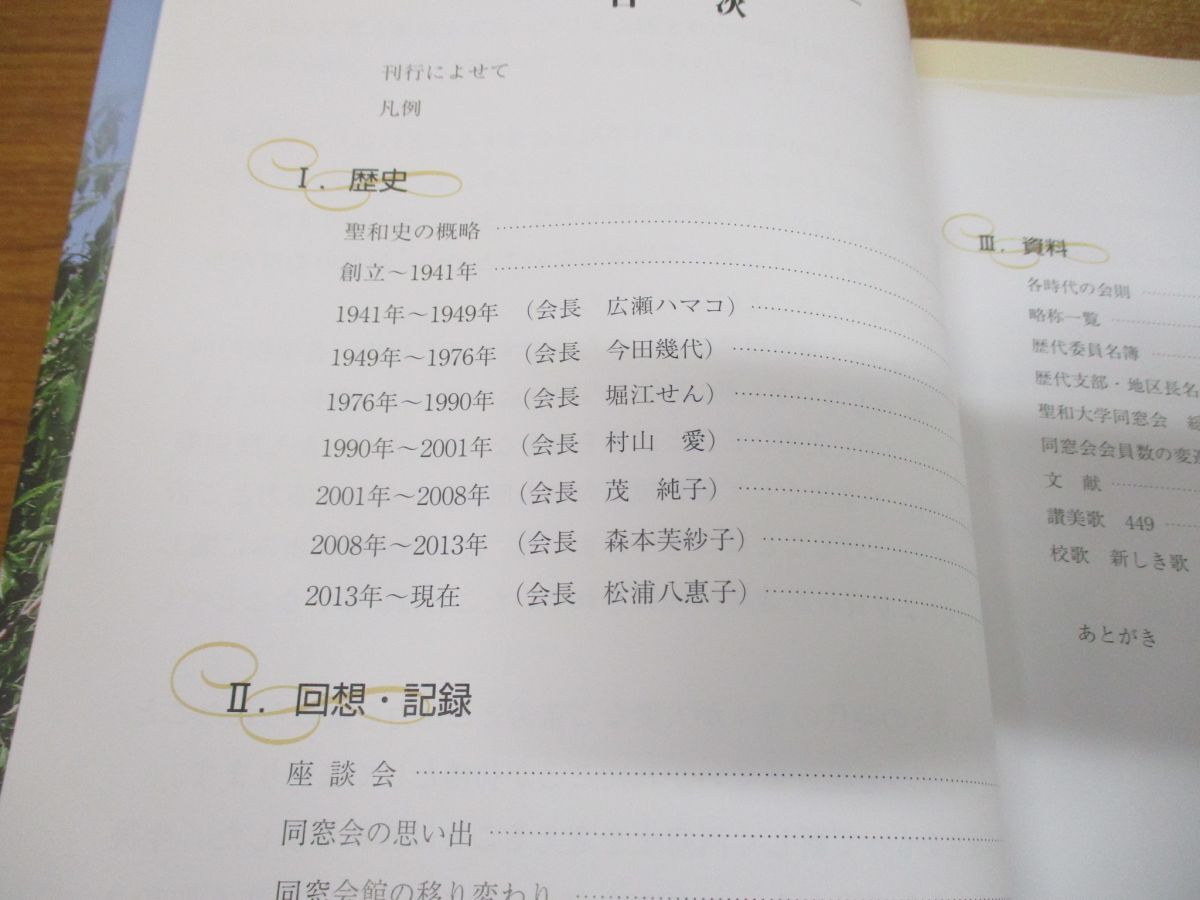 目　次
刊行によせて
凡例
Ⅰ. 歴史
聖和史の概略
創立～1941年
1941年～1949年 （会長　広瀬ハマコ）
1949年～1976年 （会長　今田幾代）
1976年～1990年 （会長　堀江せん）
1990年～2001年 （会長　村山　愛）
2001年～2008年 （会長　茂　純子）
2008年～2013年 （会長　森本芙紗子）
2013年～現在 （会長　松浦八惠子）
Ⅱ. 回想・記録
座 談 会
同窓会の思い出
同窓会館の移り変わり
Ⅲ. 資料
各時代の会則
略称一覧
歴代委員名簿
歴代支部・地区長名
聖和大学同窓会　総
同窓会会員数の変遷
文　献
讃美歌　449
校歌　新しき歌
あとがき